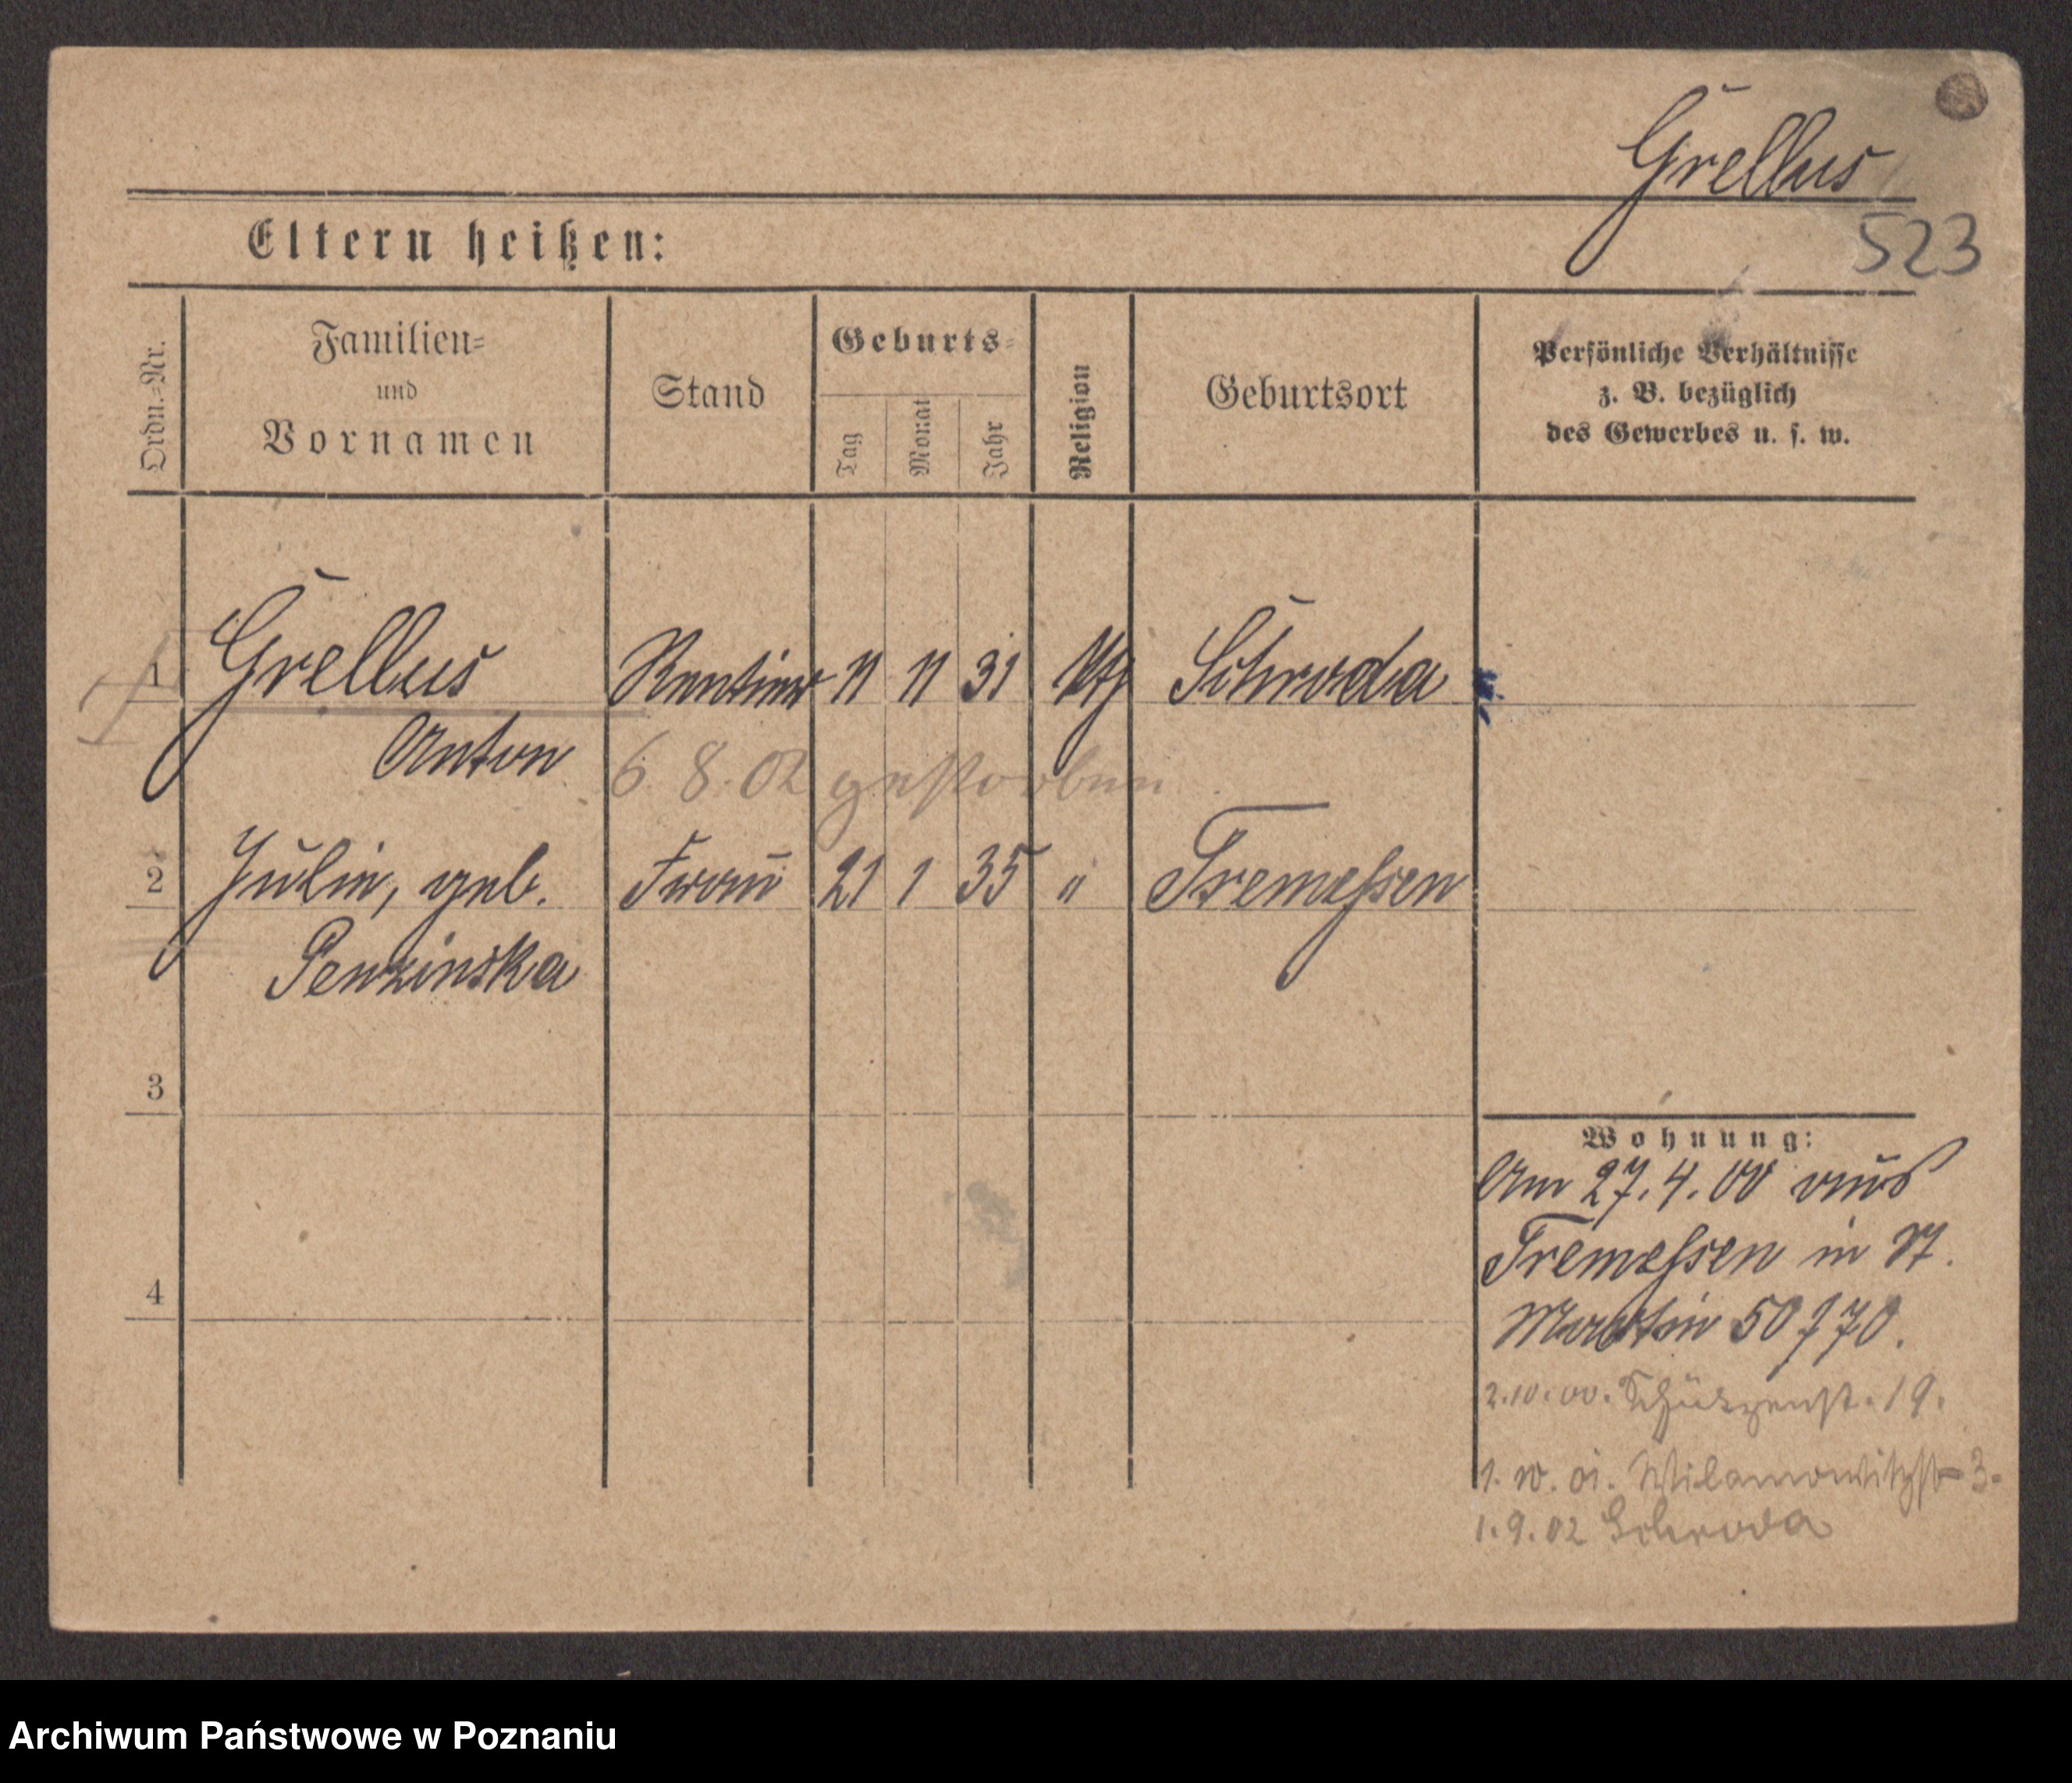 Grellus
523
Eltern heißen:
Ordn.=Nr.
Familien=
und
Vornamen
Stand
Geburts=
Tag
Monat
Jahr
Religion
Geburtsort
Persönliche Verhältnisse
z. B. bezüglich
des Gewerbes u. s. w.
1 Grellus Rentier 11 11 31 Schroda
Anton
6. 8. 02 gestorben
2 Julie, geb. Frau 21 1 35 " Tremessen
Penzinska
3
4
Wohnung:
Am 27. 4. 00 aus
Tremessen in St.
Martin 50/70.
2. 10. 00. Schützenst. 19.
1. 10. 01. Wilamowitzstr 3.
1. 9. 02 Schroda
Archiwum Państwowe w Poznaniu